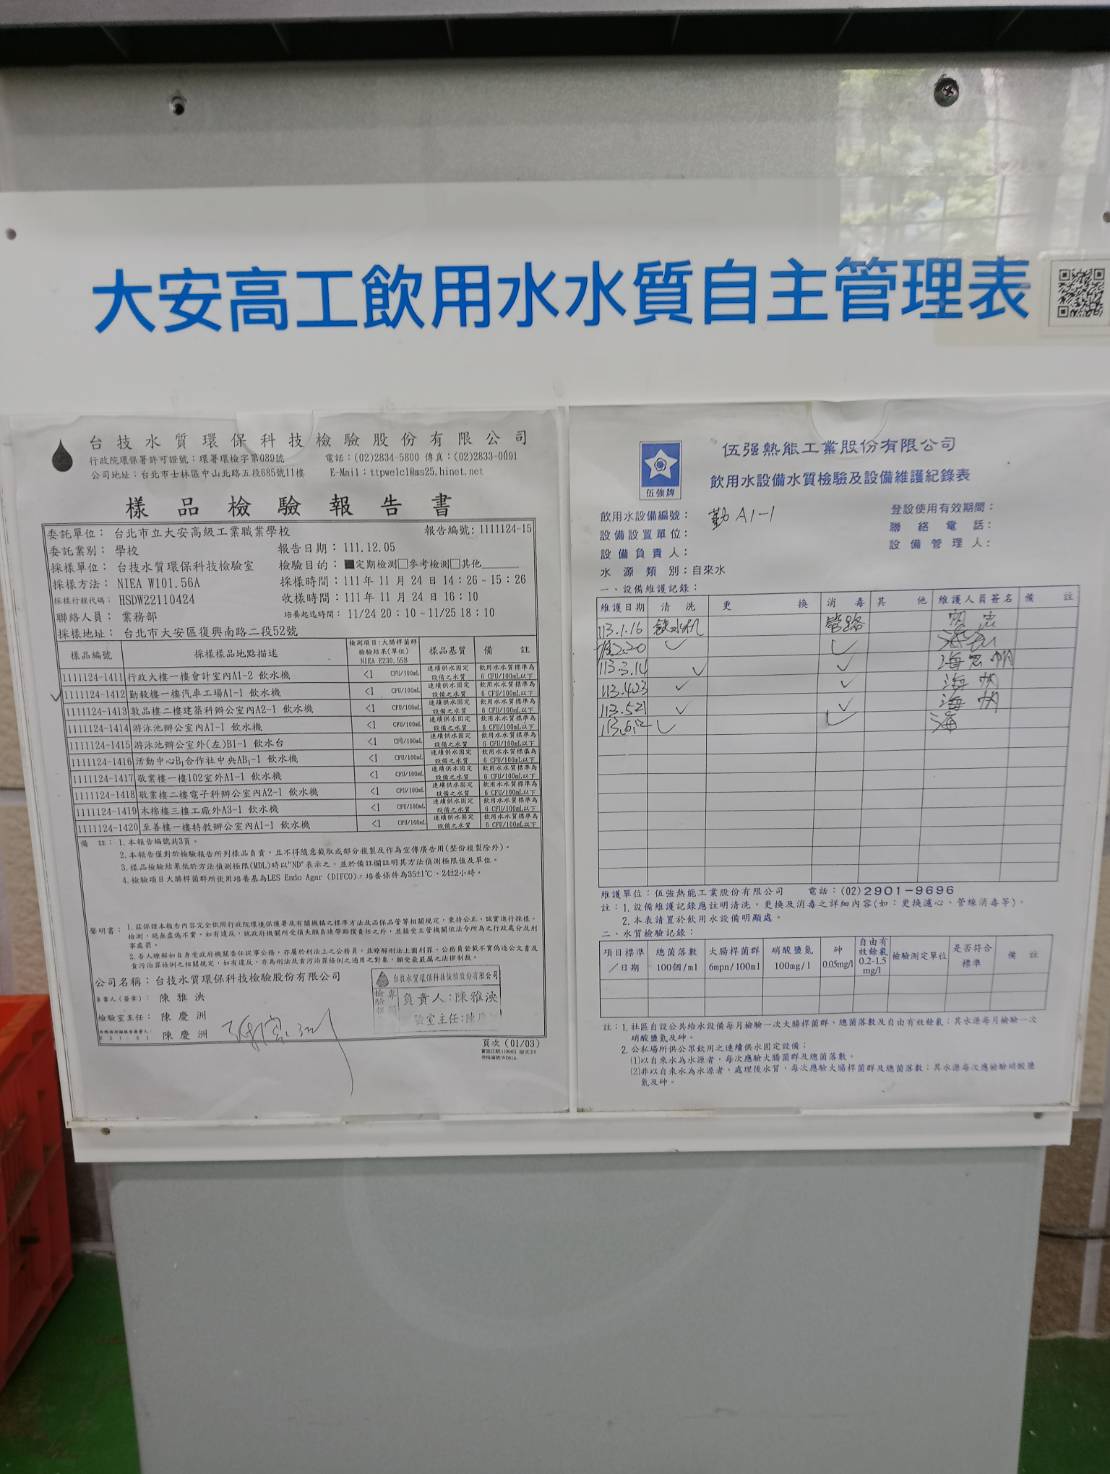 大安高工飲用水水質自主管理表
台技水質環保科技檢驗股份有限公司
行政院環保署許可證號：環署環檢字第089號 電話：(02)2834-5800 傳真：(02)2833-0091
公司地址：台北市士林區中山北路五段685號11樓 E-Mail：ttpwelcl@ms25.hinet.net
樣品檢驗報告書
委託單位：台北市立大安高級工業職業學校 報告編號：1111124-15
委託業別：學校 報告日期：111.12.05
採樣單位：台技水質環保科技檢驗室 檢驗目的：■定期檢測□參考檢測□其他
採樣方法：NIEA W101.56A 採樣時間：111年11月24日14:26-15:26
採樣行程代碼：HSDW22110424 收樣時間：111年11月24日16:10
聯絡人員：業務部 培養起迄時間：11/24 20:10-11/25 18:10
採樣地址：台北市大安區復興南路二段52號
樣品編號 採樣樣品地點描述 檢測項目:大腸桿菌群 檢驗結果(單位) NIEA E230.55B 樣品基質 備註
1111124-1411 行政大樓一樓會計室內A1-2 飲水機 <1 CFU/100mL 連續供水固定設備之水質 飲用水水質標準為6 CFU/100mL以下
1111124-1412 勤毅樓一樓汽車工場A1-1 飲水機 <1 CFU/100mL 連續供水固定設備之水質 飲用水水質標準為6 CFU/100mL以下
1111124-1413 敦品樓二樓建築科辦公室內A2-1 飲水機 <1 CFU/100mL 連續供水固定設備之水質 飲用水水質標準為6 CFU/100mL以下
1111124-1414 游泳池辦公室內A1-1 飲水機 <1 CFU/100mL 連續供水固定設備之水質 飲用水水質標準為6 CFU/100mL以下
1111124-1415 游泳池辦公室外(左)B1-1 飲水台 <1 CFU/100mL 連續供水固定設備之水質 飲用水水質標準為6 CFU/100mL以下
1111124-1416 活動中心B₁合作社中央AB₁-1 飲水機 <1 CFU/100mL 連續供水固定設備之水質 飲用水水質標準為6 CFU/100mL以下
1111124-1417 敬業樓一樓102室外A1-1 飲水機 <1 CFU/100mL 連續供水固定設備之水質 飲用水水質標準為6 CFU/100mL以下
1111124-1418 敬業樓二樓電子科辦公室內A2-1 飲水機 <1 CFU/100mL 連續供水固定設備之水質 飲用水水質標準為6 CFU/100mL以下
1111124-1419 木棉樓三樓工廠外A3-1 飲水機 <1 CFU/100mL 連續供水固定設備之水質 飲用水水質標準為6 CFU/100mL以下
1111124-1420 至善樓一樓特教辦公室內A1-1 飲水機 <1 CFU/100mL 連續供水固定設備之水質 飲用水水質標準為6 CFU/100mL以下
備註：1.本報告編號共3頁。
2.本報告僅對於檢驗報告所列樣品負責，且不得隨意截取或部分複製及作為宣傳廣告用(整份複製除外)。
3.樣品檢驗結果低於方法偵測極限(MDL)時以"ND"表示之，並於備註欄註明其方法偵測極限值及單位。
4.檢驗項目大腸桿菌群所使用培養基為LES Endo Agar (DIFCO)，培養條件為35±1℃、24±2小時。
聲明書：
公司名稱：台技水質環保科技檢驗股份有限公司
負責人(簽章)：陳雅泱
檢驗室主任：陳慶洲
陳慶洲
台技水質環保科技檢驗股份有限公司
負責人：陳雅泱
驗室主任：陳慶
頁次(01/03)
伍強牌
伍强熱能工業股份有限公司
飲用水設備水質檢驗及設備維護紀錄表
飲用水設備編號：勤A1-1 登設使用有效期間：
設備設置單位： 聯絡電話：
設備負責人： 設備管理人：
水源類別：自來水
一、設備維護記錄：
維護日期 清洗 更換 消毒 其他 維護人員簽名 備註
113.1.16 飲水机 管路
113.2.20 ✓ ✓
113.3.14 ✓ ✓
113.4.23 ✓ ✓
113.5.21 ✓ ✓
✓ ✓
維護單位：伍強熱能工業股份有限公司 電話：(02)2901-9696
註：1.設備維護記錄應註明清洗、更換及消毒之詳細內容(如：更換濾心、管線消毒等)。
2.本表請置於飲用水設備明顯處。
二、水質檢驗記錄：
項目標準／日期 總菌落數100個/ml 大腸桿菌群6mpn/100ml 硝酸鹽氮100mg/l 砷0.05mg/l 自由有效餘氯0.2-1.5mg/l 檢驗測定單位 是否符合標準 備註
註：1.社區自設公共給水設備每月檢驗一次大腸桿菌群、總菌落數及自由有效餘氯；其水源每月檢驗一次硝酸鹽氮及砷。
2.公私場所供公眾飲用之連續供水固定設備：
(1)以自來水為水源者，每次應驗大腸菌群及總菌落數。
(2)非以自來水為水源者，處理後水質，每次應驗大腸桿菌群及總菌落數；其水源每次應檢驗硝酸鹽氮及砷。